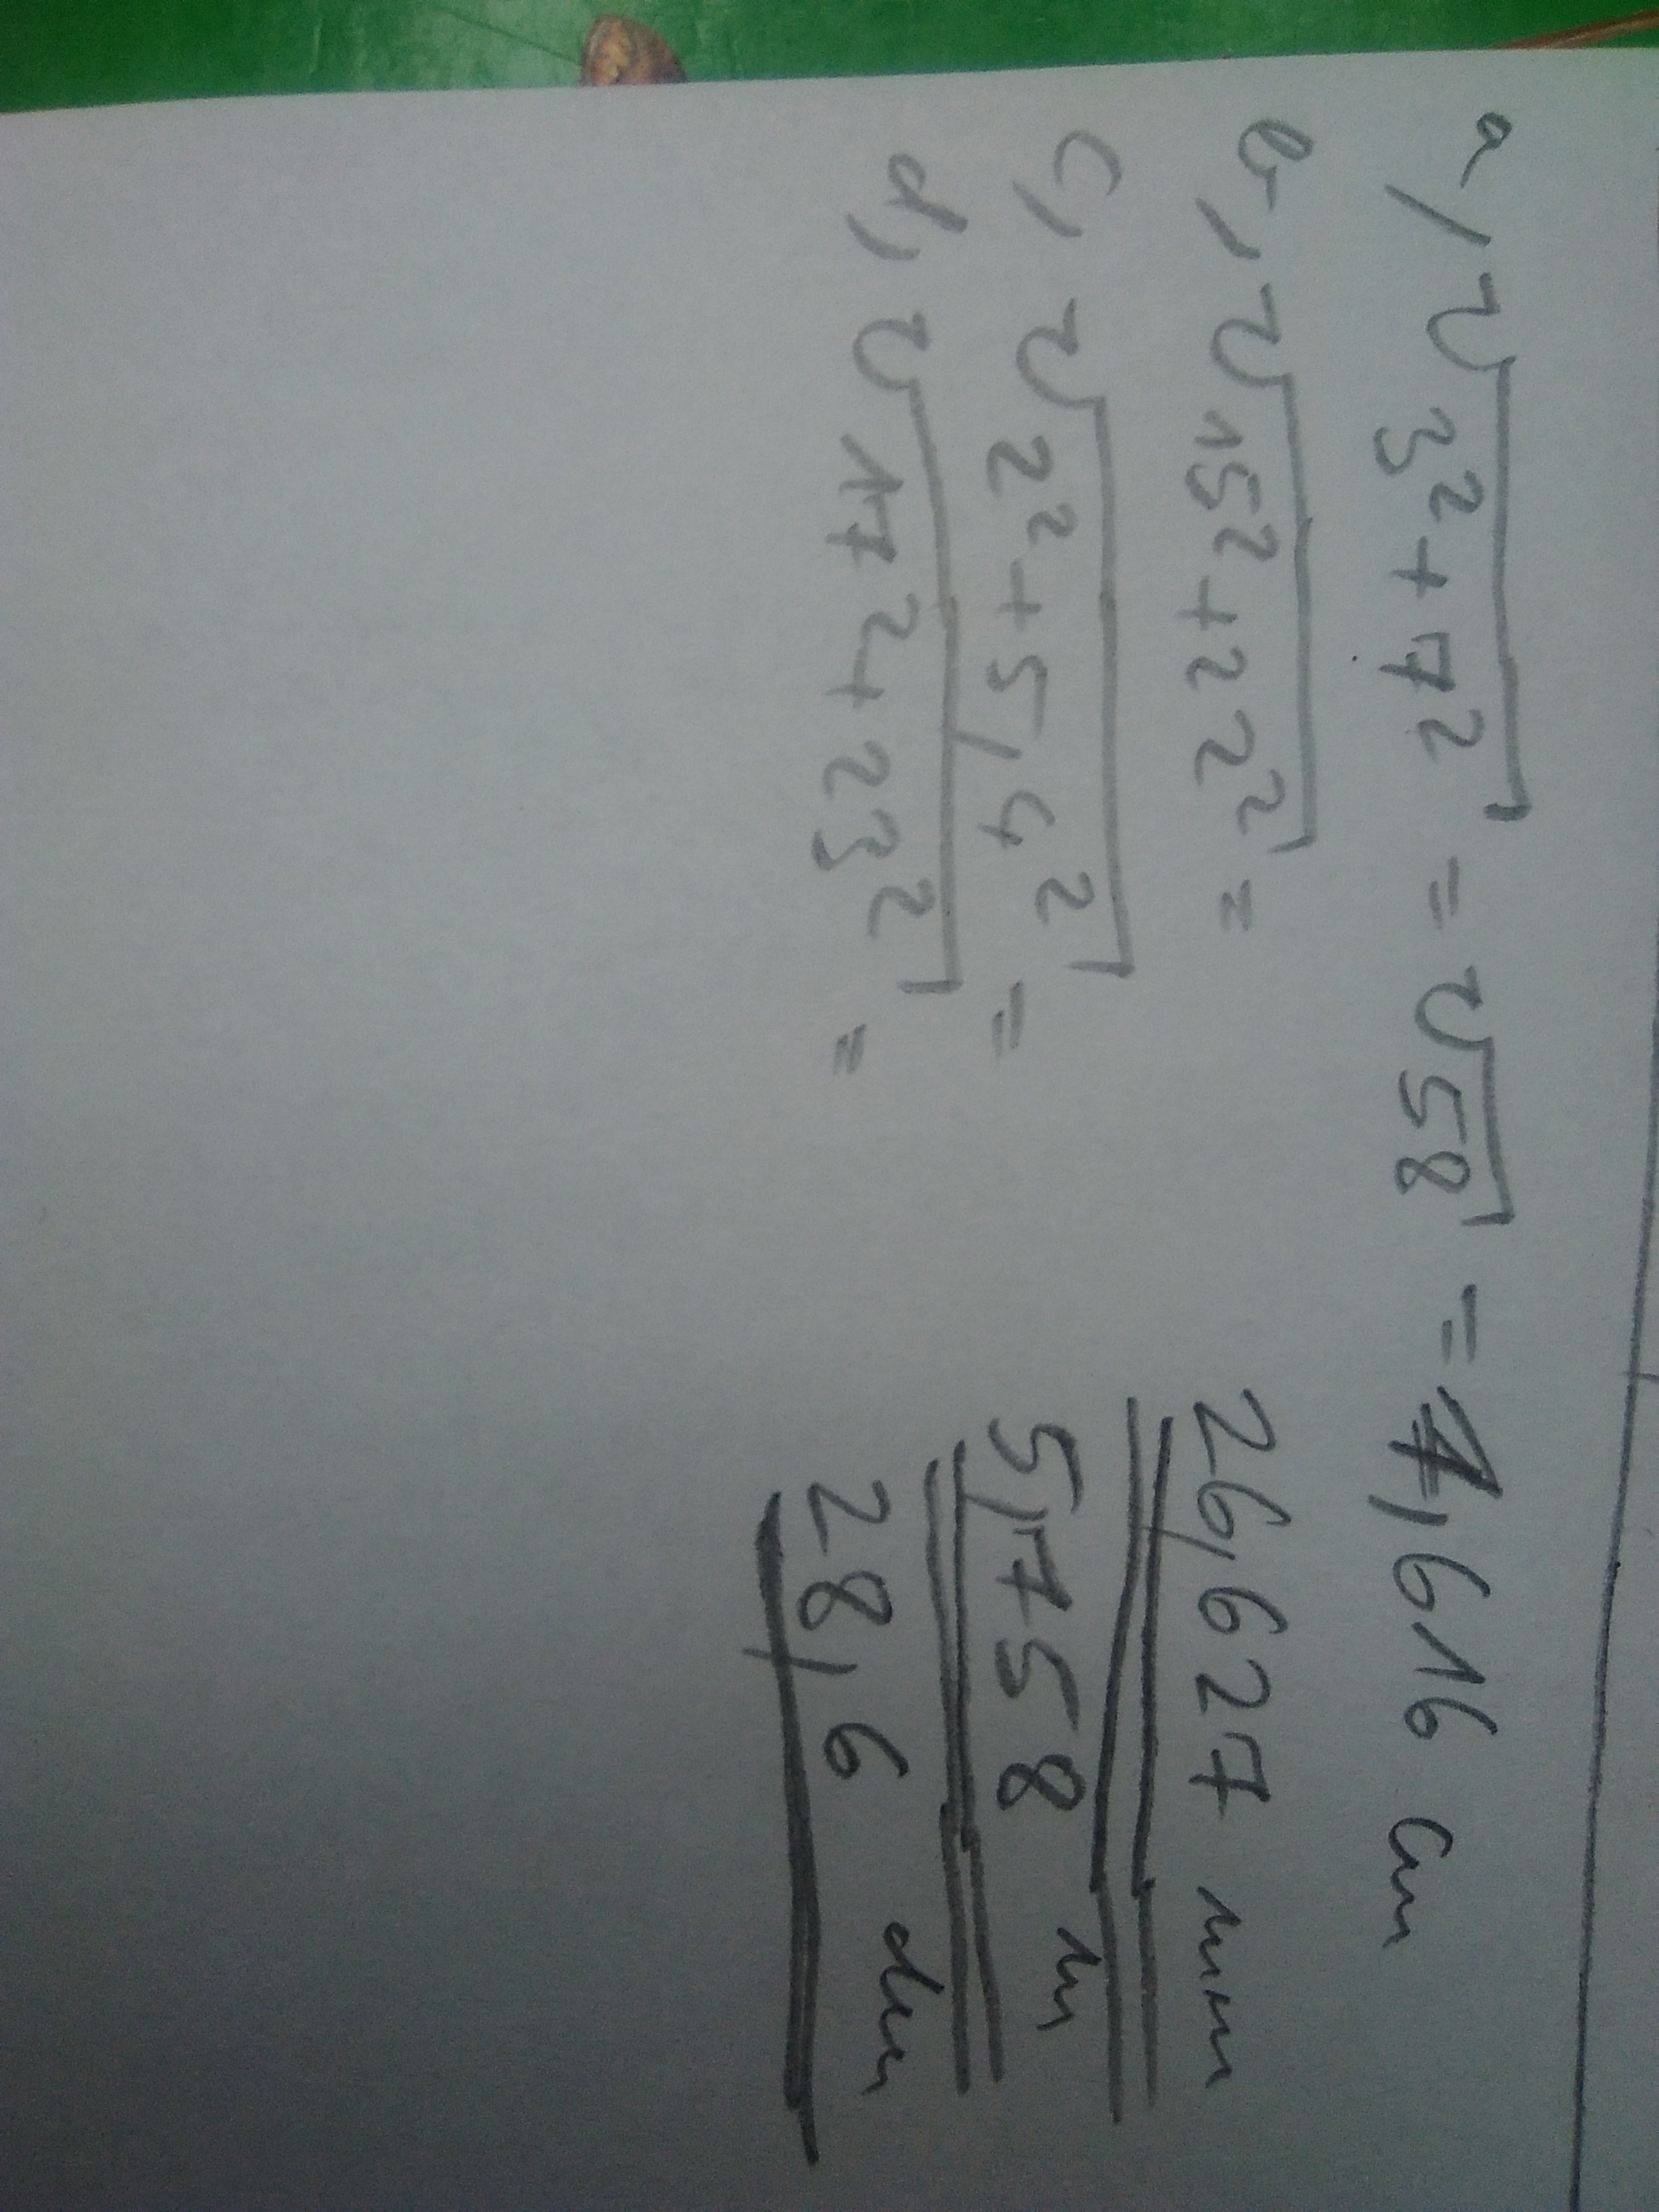 a, √3²+7² = √58 = 7,616 cm
b, √15²+22² = 26,627 mm
c, √2²+5,4² = 5,758 m
d, √17²+23² = 28,6 dm